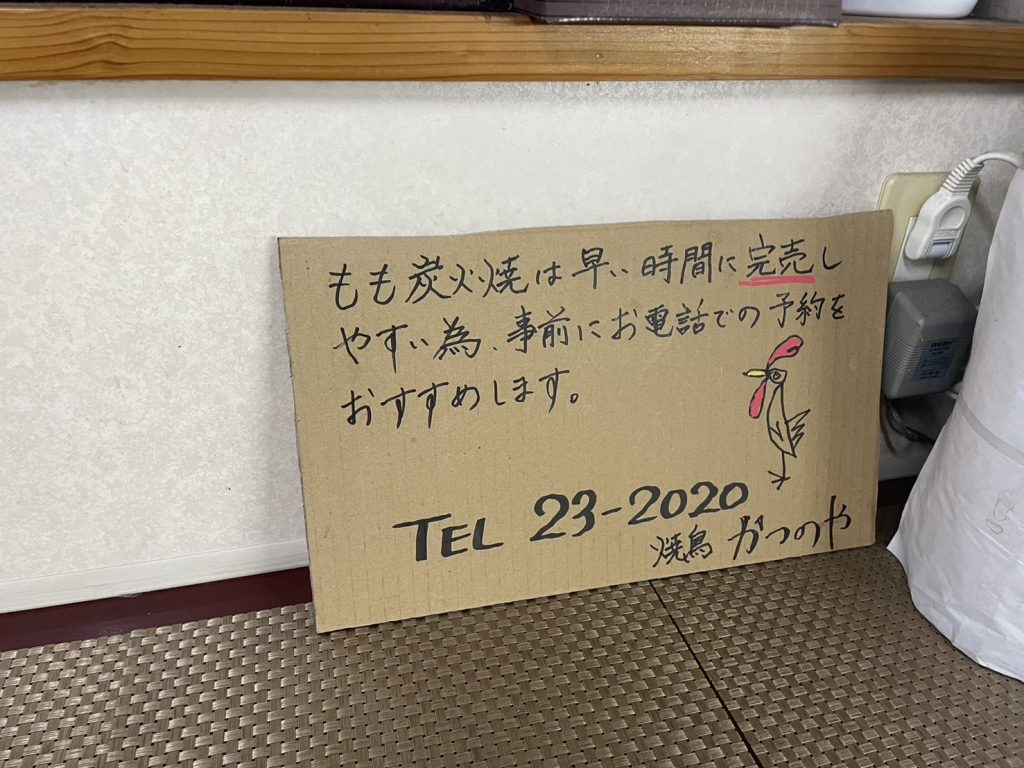 もも炭火焼は早い時間に完売し
やすい為、事前にお電話での予約を
おすすめします。
TEL 23-2020
焼鳥 かつのや